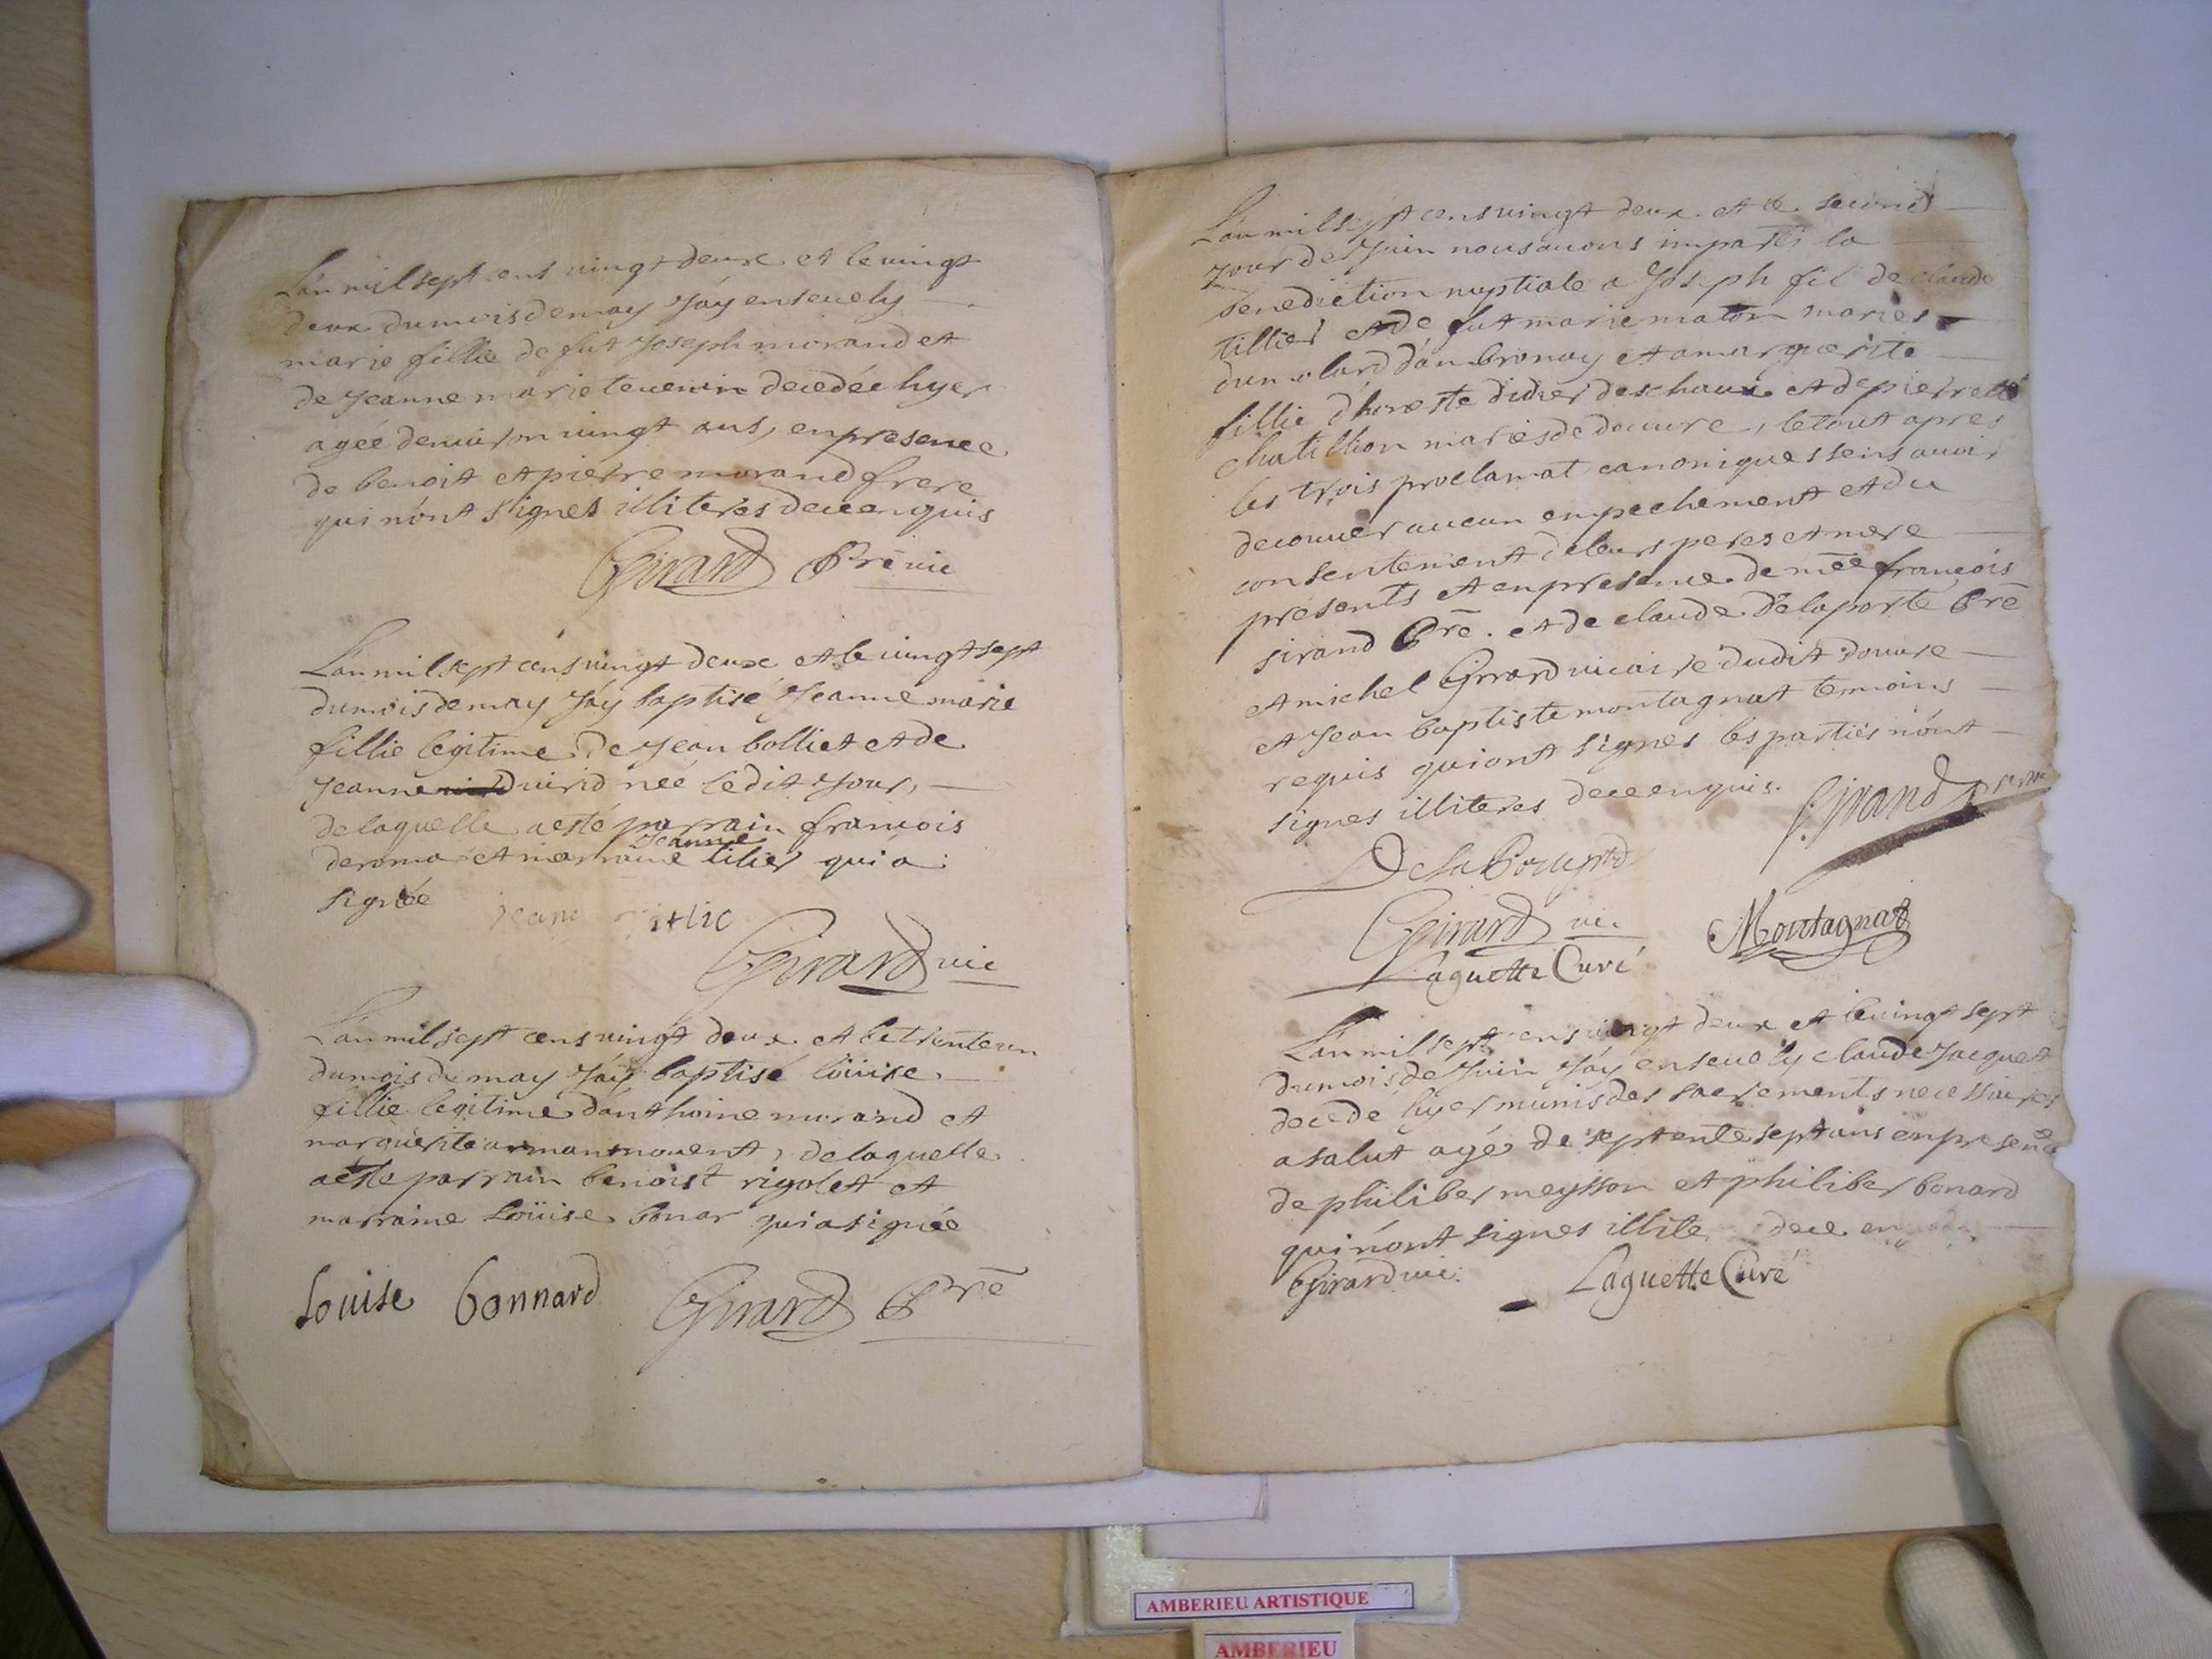 L'an mil sept cens vingt deux et le vingt
deux du mois de may J'ay enseuely
marie fillie de fut Joseph morand et
de Jeanne marie teuenin decedée hyer
agée denuiron vingt ans, en presence
de benoit et pierre morand frere
qui n'ont signes illiteres de ce enquis
Girard Bre vic
L'an mil sept cens vingt deux et le vingt sept
du mois de may J'ay baptisé Jeanne marie
fillie legitime de Jean bolliet et de
Jeanne née le dit Jour,
de laquelle a esté parrain francois
deroma et marraine Jeanne tilier qui a
signée
Girard vic
L'an mil sept cens vingt deux et le trente un
du mois de may J'ay baptisé loüise
fillie legitime d'anthoine morand et
marguerite, de laquelle
a este parrain benoist rigolet et
marraine Loüise bonar qui a signée
Louise bonnard Girard Bre
L'an mil sept cens vingt deux et le second
Jour de Juin nous auons imparti la
benediction nuptiale a Joseph fil de claude
tillier et de fut marie maton maries
du molard d'ambronay et a marguerite
fillie d'honeste didier deschaux et de pierrette
chatillion maries de douure, le tout apres
les trois proclamat canoniques sens auoir
decouuer aucun empechement et du
consentement de leurs peres et mere
presents et en presence de mée francois
sirand Bre. et de claude delaporte Bre
et michel Girard vicaire dudit douure
et Jean baptiste montagnat temoins
requis qui ont signes les parties n'ont
signes illiteres de ce enquis. Sirand
Girard vic Montagnat
Laguette Curé
L'an mil sept cens vingt deux et le vingt sept
du mois de Juin J'ay enseuely claude Jacquet
decede hyer munis des sacrements necessaires
a salut agé de septente sept ans en presence
de philiber meysson et philiber bonard
qui n'ont signes de ce
Girard vic. Laguette Curé
AMBERIEU ARTISTIQUE
AMBERIEU